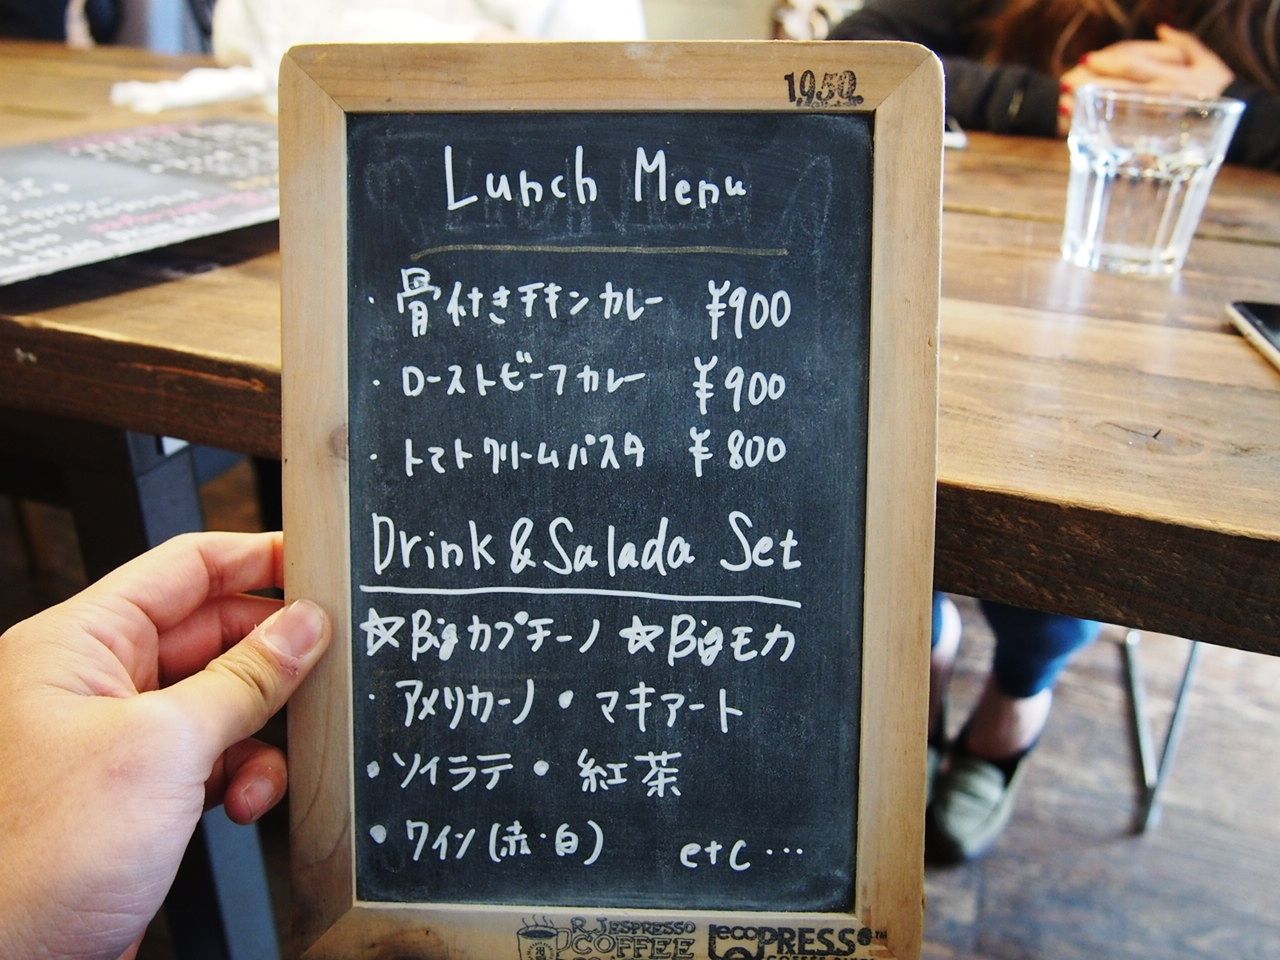 1950.
Lunch Menu
・骨付きチキンカレー ¥900
・ローストビーフカレー ¥900
・トマトクリームパスタ ¥800
Drink&Salada Set
☆Bigカプチーノ ☆Bigモカ
・アメリカーノ・マキアート
・ソイラテ・紅茶
・ワイン(赤・白) etc…
R J ESPRESSO
COFFEE
PRESSO